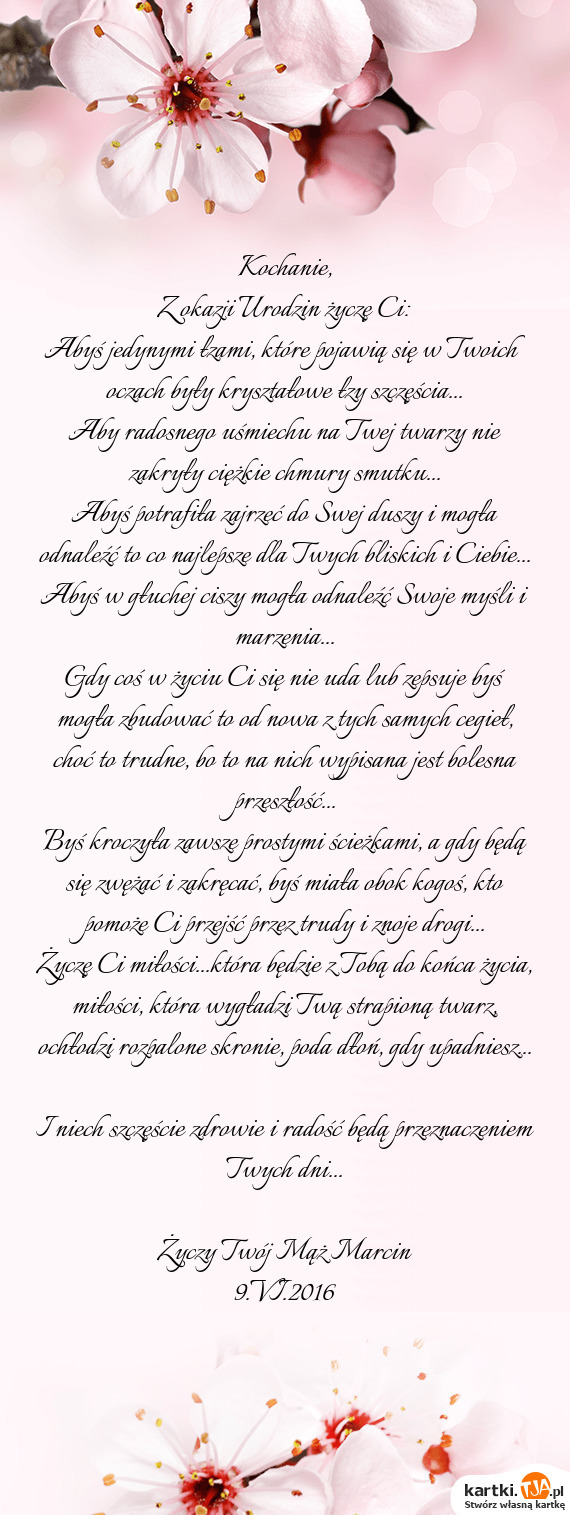 Kochanie,
Z okazji Urodzin życzę Ci:
Abyś jedynymi łzami, które pojawią się w Twoich
oczach były kryształowe łzy szczęścia...
Aby radosnego uśmiechu na Twej twarzy nie
zakryły ciężkie chmury smutku...
Abyś potrafiła zajrzęć do Swej duszy i mogła
odnaleźć to co najlepsze dla Twych bliskich i Ciebie...
Abyś w głuchej ciszy mogła odnaleźć Swoje myśli i
marzenia...
Gdy coś w życiu Ci się nie uda lub zepsuje byś
mogła zbudować to od nowa z tych samych cegieł,
choć to trudne, bo to na nich wypisana jest bolesna
przeszłość...
Byś kroczyła zawsze prostymi ścieżkami, a gdy będą
się zwężać i zakręcać, byś miała obok kogoś, kto
pomoże Ci przejść przez trudy i znoje drogi...
Życzę Ci miłości...która będzie z Tobą do końca życia,
miłości, która wygładzi Twą strapioną twarz,
ochłodzi rozpalone skronie, poda dłoń, gdy upadniesz...
I niech szczęście zdrowie i radość będą przeznaczeniem
Twych dni...
Życzy Twój Mąż Marcin
9.VI.2016
kartki.TJA.pl
Stwórz własną kartkę